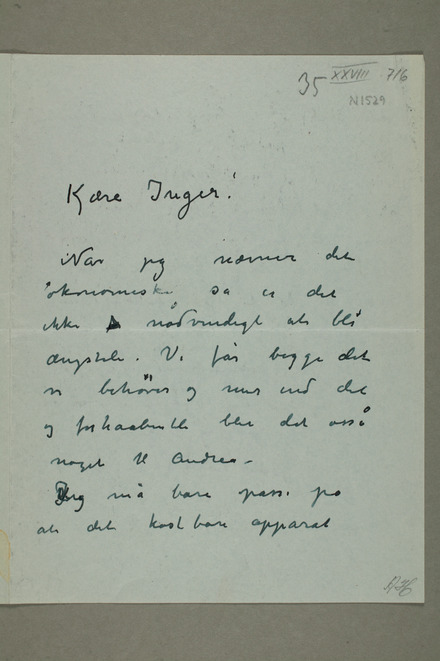 35 XXVIII 7/6
N1529
Kjære Inger!
Når jeg nævner det
økonomiske så er det
ikke nødvendigt at bli
ængstele. Vi får begge det
vi behøver og mer end det
og forhaabentli blir det også
noget til andre –
Jeg må bare passe på
at det kostbare apparat